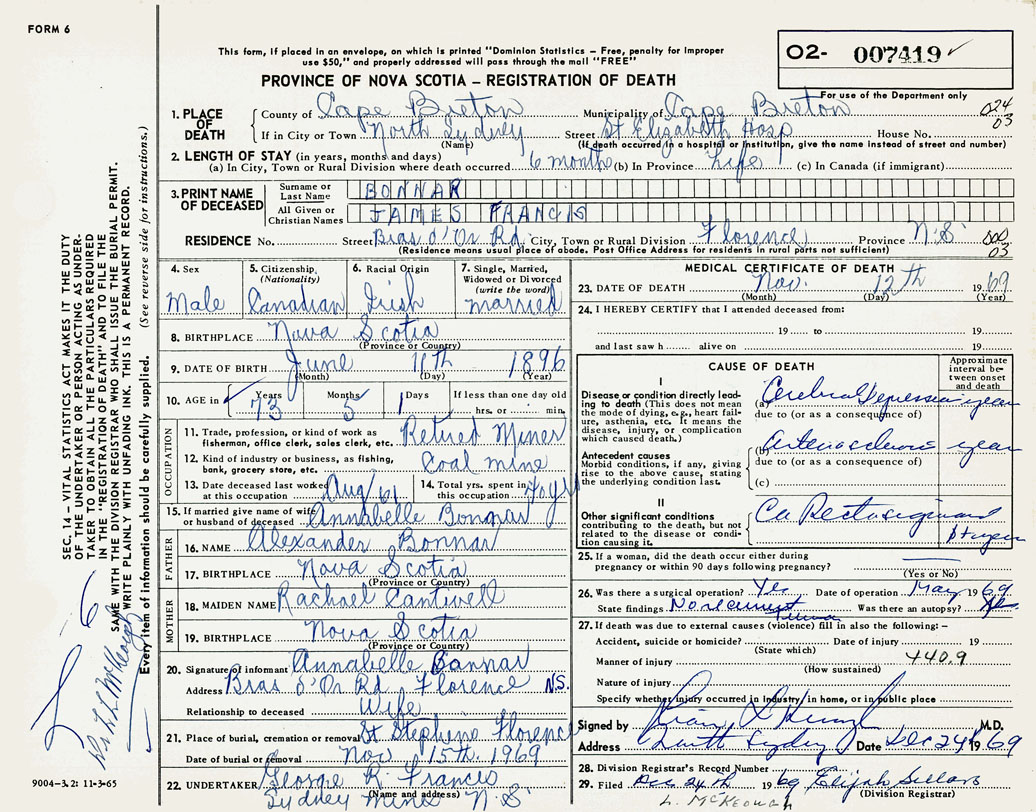 FORM 6
This form, if placed in an envelope, on which is printed "Dominion Statistics – Free, penalty for improper
use $50," and properly addressed will pass through the mail "FREE"
PROVINCE OF NOVA SCOTIA – REGISTRATION OF DEATH
O2- 007419 ✓
For use of the Department only
024
03
1. PLACE OF DEATH County of Cape Breton Municipality of Cape Breton
If in City or Town North Sydney Street St Elizabeth Hosp House No.
(Name) (If death occurred in a hospital or institution, give the name instead of street and number)
2. LENGTH OF STAY (in years, months and days)
(a) In City, Town or Rural Division where death occurred 6 months (b) In Province Life (c) In Canada (if immigrant)
3. PRINT NAME OF DECEASED Surname or Last Name BONNAR
All Given or Christian Names JAMES FRANCIS
RESIDENCE No. Street Bras d'Or Rd City, Town or Rural Division Florence Province N.S.
(Residence means usual place of abode. Post Office Address for residents in rural parts not sufficient)
03
4. Sex 5. Citizenship (Nationality) 6. Racial Origin 7. Single, Married, Widowed or Divorced (write the word)
Male Canadian Irish married
8. BIRTHPLACE Nova Scotia
(Province or Country)
9. DATE OF BIRTH June 11th 1896
(Month) (Day) (Year)
10. AGE in Years Months Days If less than one day old
73 5 1 hrs. or min.
OCCUPATION
11. Trade, profession, or kind of work as fisherman, office clerk, sales clerk, etc. Retired Miner
12. Kind of industry or business, as fishing, bank, grocery store, etc. Coal mine
13. Date deceased last worked at this occupation Aug/61 14. Total yrs. spent in this occupation 40 yrs
15. If married give name of wife or husband of deceased Annabelle Bonnar
FATHER
16. NAME Alexander Bonnar
17. BIRTHPLACE Nova Scotia
(Province or Country)
MOTHER
18. MAIDEN NAME Rachael Cantwell
19. BIRTHPLACE Nova Scotia
(Province or Country)
20. Signature of informant Annabelle Bonnar
Address Bras d'Or Rd Florence N.S.
Relationship to deceased Wife
21. Place of burial, cremation or removal St Stephens Florence
Date of burial or removal Nov 15th. 1969
22. UNDERTAKER George R. Francis
(Name and address)
Sydney Mines N.S.
MEDICAL CERTIFICATE OF DEATH
23. DATE OF DEATH Nov. 12th 1969
(Month) (Day) (Year)
24. I HEREBY CERTIFY that I attended deceased from:
19 to 19
and last saw h alive on 19
CAUSE OF DEATH
Approximate interval between onset and death
I
Disease or condition directly leading to death (This does not mean the mode of dying, e.g., heart failure, asthenia, etc. It means the disease, injury, or complication which caused death.)
(a) Cerebral Depression years
due to (or as a consequence of)
Antecedent causes
Morbid conditions, if any, giving rise to the above cause, stating the underlying condition last.
(b) years
due to (or as a consequence of)
(c)
II
Other significant conditions
contributing to the death, but not related to the disease or condition causing it.
Ca Rectosigmoid
25. If a woman, did the death occur either during pregnancy or within 90 days following pregnancy?
(Yes or No)
26. Was there a surgical operation? Yes Date of operation May 1969
State findings No recurrent Was there an autopsy?
27. If death was due to external causes (violence) fill in also the following: –
Accident, suicide or homicide? Date of injury 19
(State which)
Manner of injury 440.9
(How sustained)
Nature of injury
Specify whether injury occurred in industry, in home, or in public place
Signed by M.D.
Address North Sydney Date Dec 24 1969
28. Division Registrar's Record Number
29. Filed Dec 24th 1969 Elijah Sellars
(Division Registrar)
L. McKEOUGH
SEC. 14 – VITAL STATISTICS ACT MAKES IT THE DUTY
OF THE UNDERTAKER OR PERSON ACTING AS UNDER-
TAKER TO OBTAIN ALL THE PARTICULARS REQUIRED
IN THE "REGISTRATION OF DEATH" AND TO FILE THE
SAME WITH THE DIVISION REGISTRAR WHO SHALL ISSUE THE BURIAL PERMIT.
WRITE PLAINLY WITH UNFADING INK. THIS IS A PERMANENT RECORD.
Every item of information should be carefully supplied. (See reverse side for instructions.)
Dr. L L McKeough
9004-3.2: 11-3-65